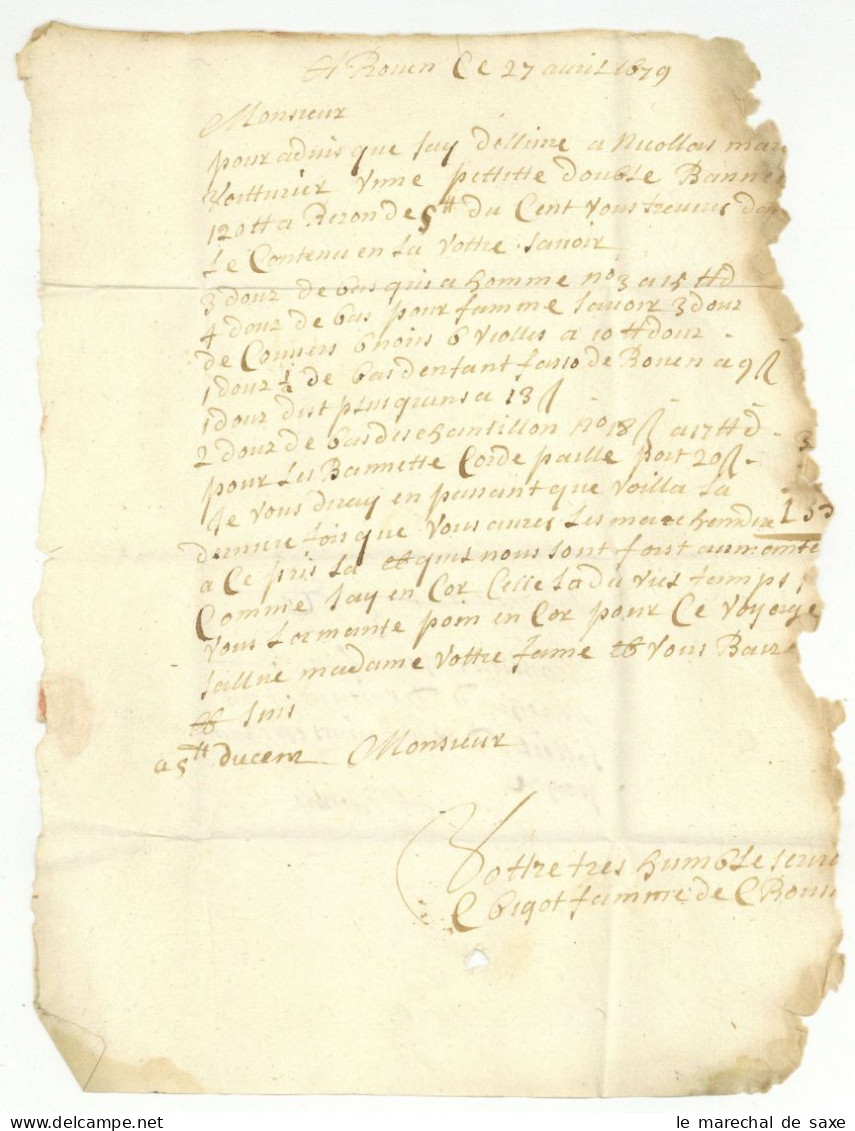 A Rouen Ce 27 avril 1679
Monsieur
pour advis que Jay dellivre a Nicollas mar
Voitturier Vnne pettitte double Banne
120 tt a Raison de 5 tt du Cent Vous treuveres dan
Le Contenu en La Vottre Savoir
3 douz de bas gris a homme no 3 a 15 tt d
4 douz de bas pour famme Savoir 3 douz
de 6 noirs 6 viollés a 10 tt douz
1 douz ½ de bas denfant de Rouen a 9 ſ
1 douz dist plus grans a 13 ſ
2 douz de bas dischantillon no 18 ſ a 17 tt d
pour Les Bannette Corde paille port 20 ſ 3
Je vous diray en passant que voilla La
derniere fois que Vous aures Les marchandise 133
a Ce pris La et quis nous sont fort aumante
Comme Jay en Cor Celle La du vieus temps
Vous Lormante poin en Cor pour Ce voyage
Sallue madame Vottre fame et vous Baize
et suis
a 5 tt du cent Monsieur
Vottre tres humble servi
C bigot famme de C Rous
le marechal de saxe